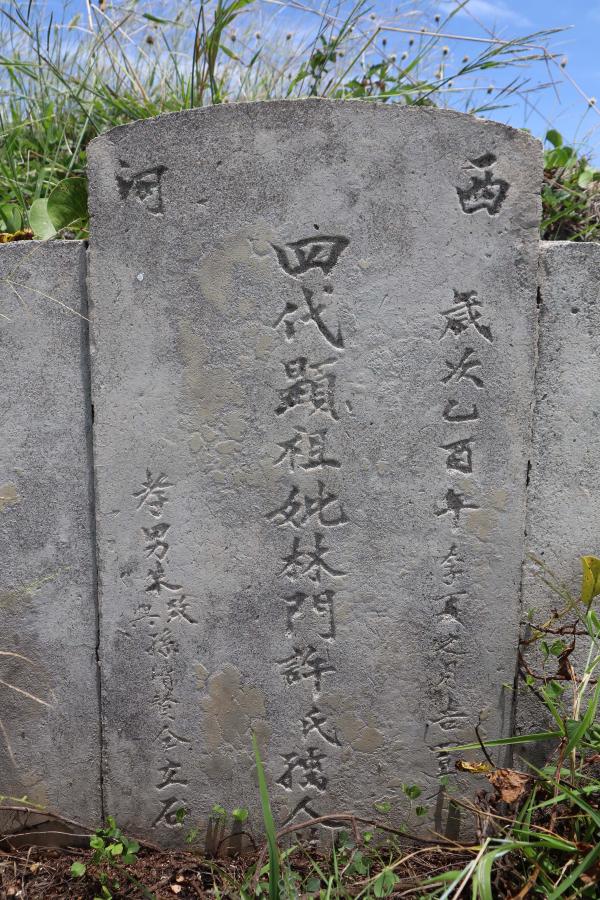 西河
歲次乙酉年季夏
吉置
四代顯祖妣林門許氏孺人
孝男朱
孫
仝立石